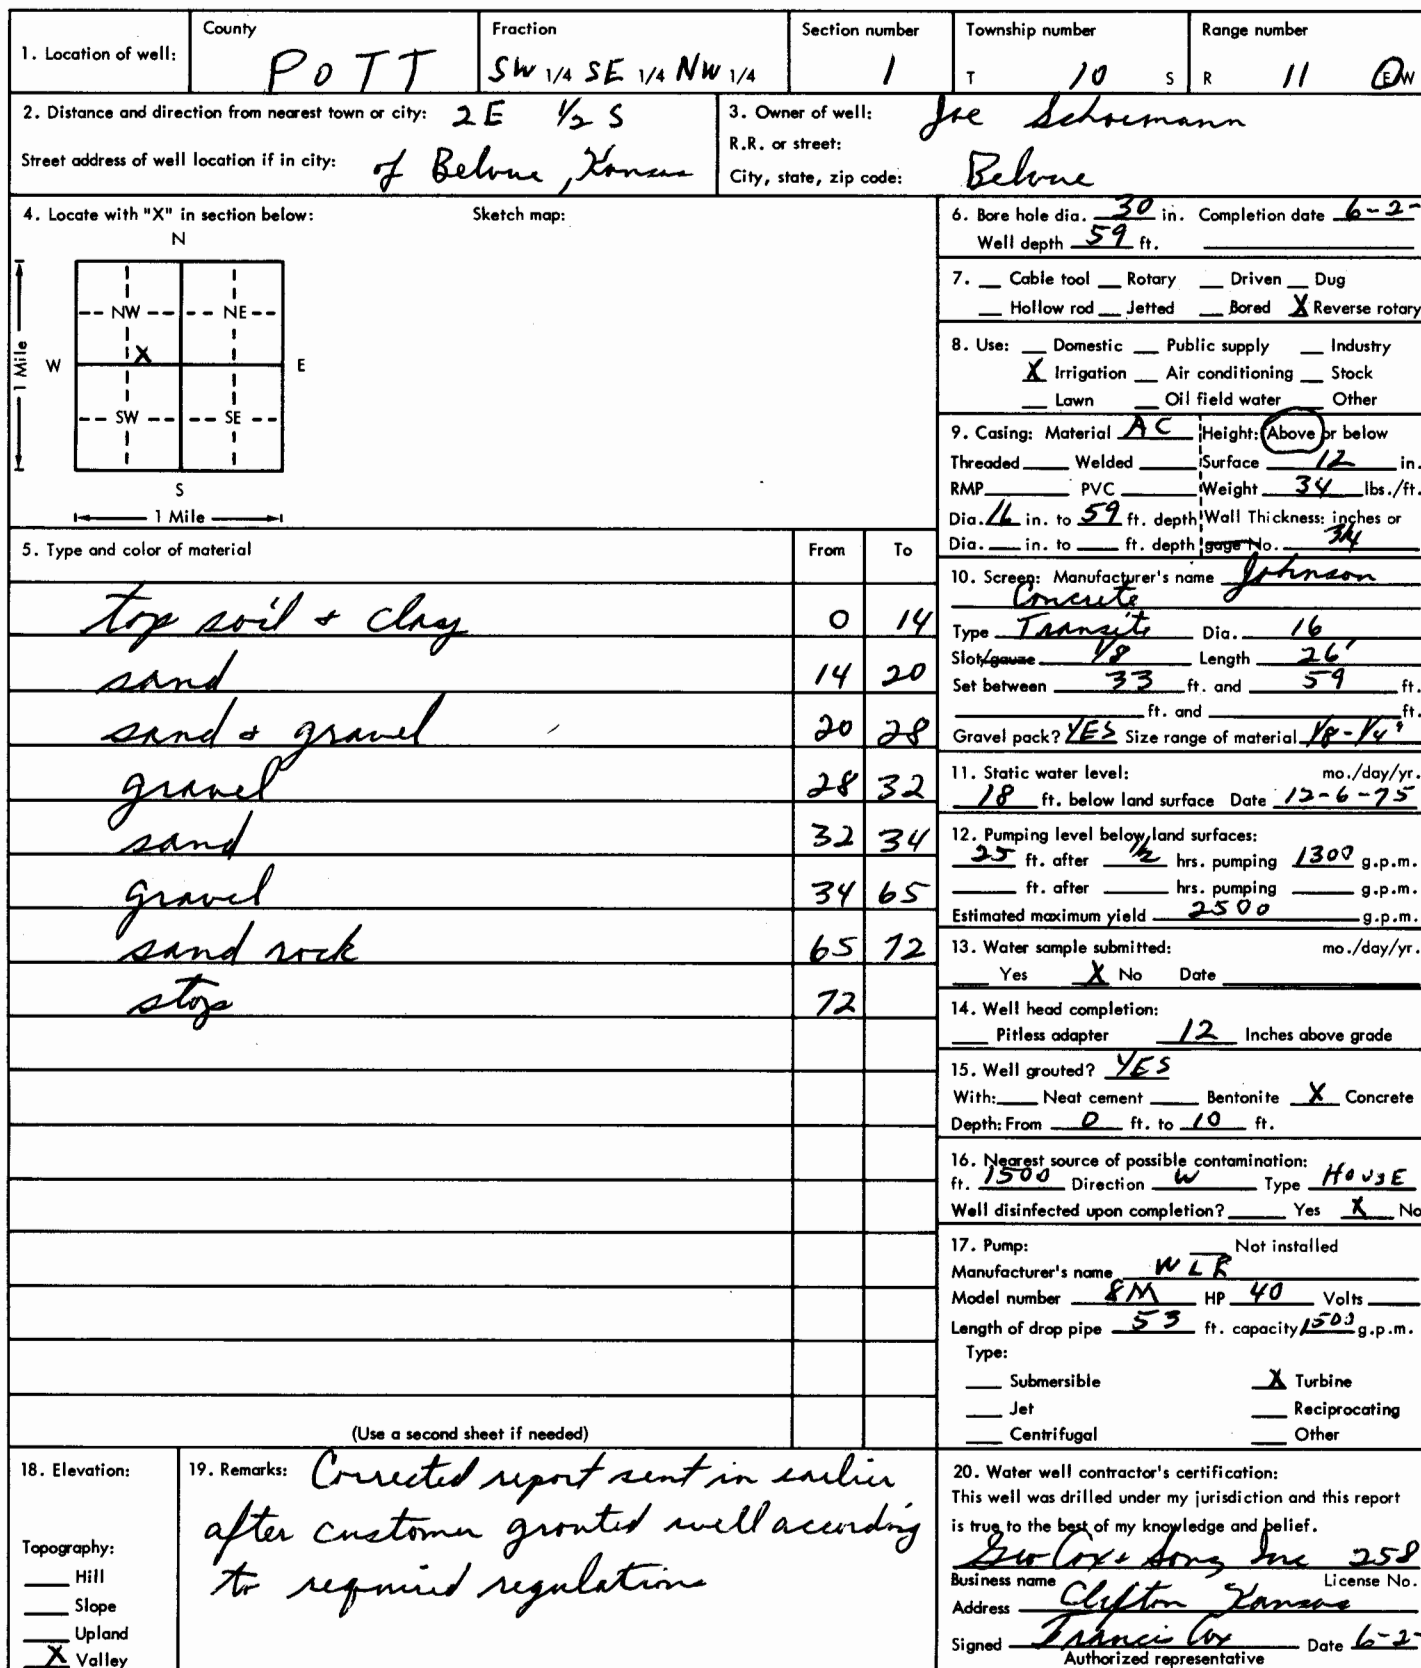 1. Location of well: County POTT Fraction SW 1/4 SE 1/4 NW 1/4 Section number 1 Township number T 10 S Range number R 11 E W
2. Distance and direction from nearest town or city: 2 E 1/2 S
Street address of well location if in city: of Belvue, Kansas
3. Owner of well: Joe Schoemann
R.R. or street:
City, state, zip code: Belvue
4. Locate with "X" in section below: Sketch map:
N
NW NE
1 Mile W X E
SW SE
S
1 Mile
5. Type and color of material From To
top soil & clay 0 14
sand 14 20
sand & gravel 20 28
gravel 28 32
sand 32 34
gravel 34 65
sand rock 65 72
stop 72
(Use a second sheet if needed)
6. Bore hole dia. 30 in. Completion date 6-2-
Well depth 59 ft.
7. Cable tool Rotary Driven Dug
Hollow rod Jetted Bored X Reverse rotary
8. Use: Domestic Public supply Industry
X Irrigation Air conditioning Stock
Lawn Oil field water Other
9. Casing: Material AC Height: Above or below
Threaded Welded Surface 12 in.
RMP PVC Weight 34 lbs./ft.
Dia. 16 in. to 59 ft. depth Wall Thickness: inches or
Dia. in. to ft. depth gage No. 3/4
10. Screen: Manufacturer's name Johnson
Concrete
Type Transite Dia. 16
Slot/gauze 1/8 Length 26'
Set between 33 ft. and 59 ft.
ft. and ft.
Gravel pack? YES Size range of material 1/8-1/4"
11. Static water level: mo./day/yr.
18 ft. below land surface Date 12-6-75
12. Pumping level below land surfaces:
25 ft. after 1/2 hrs. pumping 1300 g.p.m.
ft. after hrs. pumping g.p.m.
Estimated maximum yield 2500 g.p.m.
13. Water sample submitted: mo./day/yr.
Yes X No Date
14. Well head completion:
Pitless adapter 12 Inches above grade
15. Well grouted? YES
With: Neat cement Bentonite X Concrete
Depth: From 0 ft. to 10 ft.
16. Nearest source of possible contamination:
ft. 1500 Direction W Type HOUSE
Well disinfected upon completion? Yes X No
17. Pump: Not installed
Manufacturer's name WLR
Model number 8M HP 40 Volts
Length of drop pipe 53 ft. capacity 1500 g.p.m.
Type:
Submersible X Turbine
Jet Reciprocating
Centrifugal Other
18. Elevation:
Topography:
Hill
Slope
Upland
X Valley
19. Remarks: Corrected report sent in earlier
after customer grouted well according
to required regulations
20. Water well contractor's certification:
This well was drilled under my jurisdiction and this report
is true to the best of my knowledge and belief.
Geo Cox & Sons, Inc 258
Business name License No.
Address Clifton Kansas
Signed Francis Cox Date 6-2-
Authorized representative